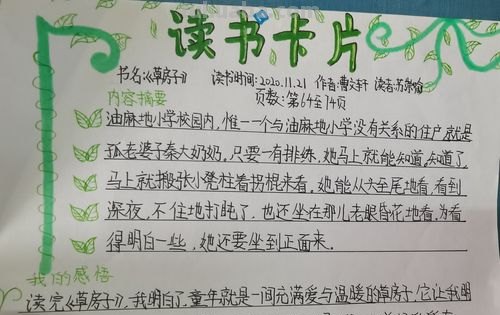 读书卡片
书名:《草房子》 读书时间:2020.11.21 作者:曹文轩 读者:苏
页数:第64至74页
内容摘要
油麻地小学校园内,惟一一个与油麻地小学没有关系的住户就是
孤老婆子秦大奶奶,只要一有排练,她马上就能知道,知道了
马上就搬张小凳柱着拐棍来看,她能从头至尾地看,看到
深夜,不住地打盹了,也还坐在那儿老眼昏花地看,为看
得明白一些,她还要坐到正面来.
我的感悟
读完《草房子》,我明白了,童年就是一间充满爱与温暖的草房子,它让我明